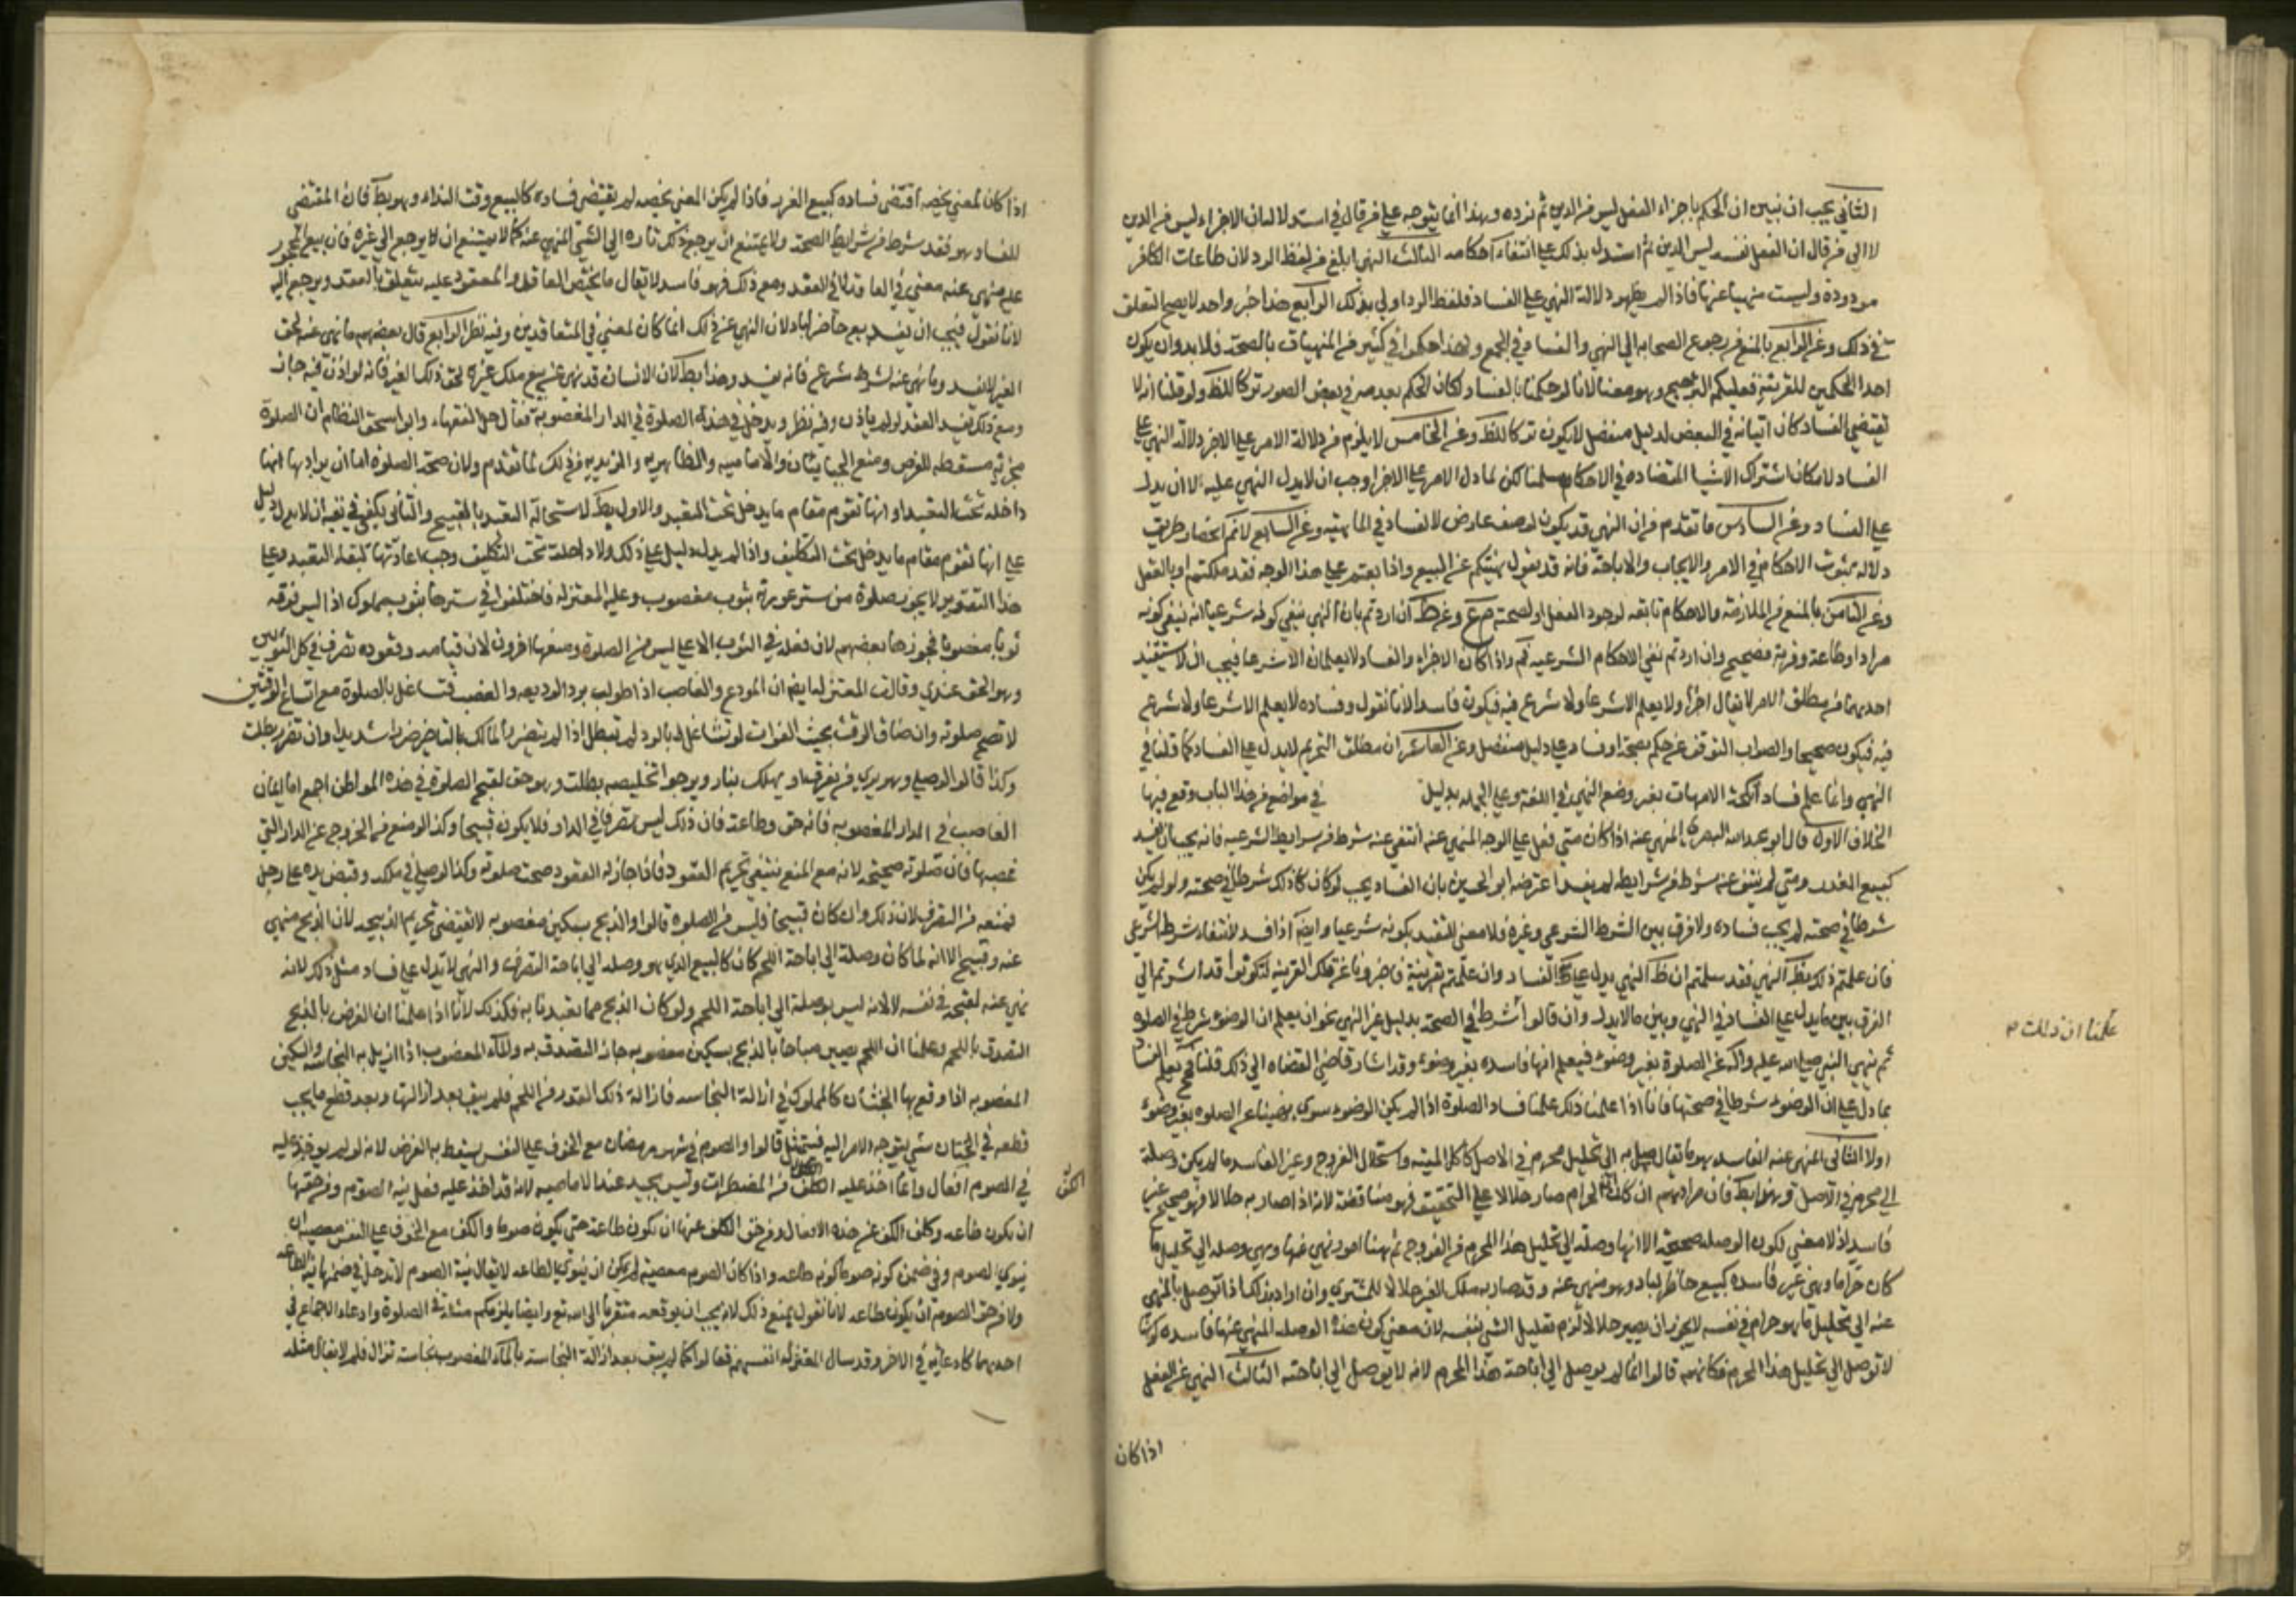 الثاني يجب ان نبين ان الحكم باجزاء الفعل ليس من الدين ثم نرده وهذا انما يتوجه على من قال في استدلاله ان الاجزاء ليس من الدين
لا الى من قال ان الفعل نفسه ليس الدين ثم استدل بذلك على انتفاء احكامه الثالث النهي ابلغ من لفظ الرد لان طاعات الكافر
مردودة وليست منهيا عنها فاذا لم يظهر دلالة النهي على الفساد فلفظ الرد اولى بذلك الرابع هذا خبر واحد لا يصح التعلق
في ذلك وعن الرابع بالمنع من رجوع الصحابه الى النهي والفساد في الجميع ولهذا حكموا في كثير من المنهيات بالصحة فلا بد وان يكون
احدا الحكمين للقرينة فعليكم الترجيح وهو معنا لانا لو حكمنا بالفساد لكان الحكم بعدمه في بعض الصور تركا للظ ولو قلنا انه لا
تقتضي الفساد كان اتيانه في البعض لدليل منفصل لا يكون تركا للظ وعن الخامس لا يلزم من دلالة الامر على الاجزاء دلالة النهي على
الفساد لامكان اشتراك الاشيا المتضاده في الاحكام سلمنا لكن لما دل الامر على الاجزا وجب ان لا يدل النهي عليه لا ان يدل
على الفساد وعن السادس ما تقدم من ان النهي قد يكون لوصف عارض لا لفساد في الماهية وعن السابع لانم انحصار طريق
دلاله ثبوت الاحكام في الامر والايجاب والاباحة فانه قد يقول نهيتكم عن البيع واذا بعتم على هذا الوجه فقد ملكتم او بالعقل
وعن الثامن بالمنع من الملازمة والاحكام تابعه لوجود الفعل او لصحته وعن ط ان اردتم بان النهي ينفي كونه شرعيا انه ينفي كونه
مرادا وطاعة وقربة فصحيح وان اردتم نفي الاحكام الشرعيه فم واذا كان الاجزاء والفساد لا يعلمان الا شرعا فيجب ان لا يستفيد
احدهما من مطلق الامر لا يقال اجزأ ولا يعلم الا شرعا ولا شرع فيه فيكون فاسدا لانا نقول وفساده لا يعلم الا شرعا ولا شرع
فيه فيكون صحيحا والصواب التوقف عن حكم بصحة او فساد على دليل منفصل وعن العاشر ان مطلق التحريم لا يدل على الفساد كما قلنا في
النهي وانما علم فساد انكحة الامهات بغير وضع النهي في اللغة وعلى الجمله بدليل في مواضع من هذا الباب وقع فيها
الخلاف الاول قال ابو عبد الله البصري المنهي عنه اذا كان متى فعل على الوجه المنهي عنه انتفى عنه شرط من شرايط الشرعيه فانه يجب ان يفسد
كبيع الغرر ومتى لم ينتف عنه شرط من شرايطه لم يفسد اعترضه ابو الحسين بان الفساد يجب لو كان كا ذلك شرطا في صحته ولو لم يكن
شرطا في صحته لم يجب فساده ولا فرق بين الشرط الشرعي وغيره فلا معنى للتقيد بكونه شرعيا وايض اذا فسد لانتفاء شرط الشرعي
فان علمتم ذلك بظ النهي فقد سلمتم ان ظ النهي يدل على الفساد وان علمتم بقرينة فاخبرونا عن تلك القرينه لتكونوا قد اشرتم الى
الفرق بين ما يدل على الفساد في النهي وبين ما لا يدل وان قالوا الشرط في الصحة بدليل غير النهي نحو ان يعلم ان الوضوء شرط في الصلوة
ثم نهى النبي صلى الله عليه واله عن الصلوة بغير وضوء فيعلم انها فاسده بغير وضوء وقد اشار قاضي القضاه الى ذلك قلنا فح يعلم الفساد
بما دل على ان الوضوء شرطا في صحتها فانا اذا علمنا ذلك علمنا فساد الصلوة اذا لم يكن الوضوء سوى نهينا عن الصلوه بغير وضوء
اولا الثاني المنهي عنه الفاسد هو ما يقال وصل به الى تحليل محرم في الاصل كاكل الميته واستحلال الفروج وغير الفاسد ما لم يكن وصلة
الى محرم في الاصل وهذا بط فان مرادهم ان كان الحرام صار حلالا على التحقيق فهو مناقضة لانه اذا صار به حلالا فهو صحيح غير
فاسد اذ لا معنى لكون الوصله صحيحة الا انها وصلة الى تحليل هذا المحرم من الفروج ثم ههنا امور نهي عنها وهي وصله الى تحليل ما
كان حراما وهي غير فاسده كبيع حاضر لباد وهو منهي عنه وقد صار به ملك الغير حلالا للمشتري وان اراد بذلك اذا توصل بالمنهي
عنه الى تحليل ما هو حرام في نفسه لا يجوز ان يصير حلالا لزم تعليل الشئ بنفسه لان معنى كون هذه الوصله المنهي عنها فاسده كونها
لا توصل الى تحليل هذا المحرم فكانهم قالوا انما لم يوصل الى اباحة هذا المحرم لانه لا يوصل الى اباحته الثالث النهي عن الفعل
علمنا ان ذلك
اذا كان
اذا كان لمعنى يخصه اقتضى فساده كبيع الغرر فاذا لم يكن المعنى يخصه لم يقتضي فساده كالبيع وقت النداء وهو بط فان المقتضي
للفساد هو فقد شرط من شرايط الصحة ولا يمتنع ان يرجع ذلك تاره الى الشئ المنهي عنه كما لا يمتنع ان يرجع الى غيره فان بيع المحجور
عليه منهي عنه لمعنى في العاقد لا في العقد ومع ذلك فهو فاسد لا يقال ما يختص العاقد او المعقود عليه يتعلق بالعقد ويرجع اليه
لانا نقول فيجب ان يفسد بيع حاضر لباد لان النهي عن ذلك انما كان لمعنى في المتعاقدين وفيه نظر الرابع قال بعضهم ما نهي عنه لحق
الغير لا يفسد وما نهي عنه لشرط شرعي فانه يفسد وهذا بط لان الانسان قد نهي عن بيع ملك غيره لحق ذلك الغير فانه لو اذن فيه جاز
ومع ذلك يفسد العقد لو لم ياذن وفيه نظر ويدخل في هذه الصلوة في الدار المغصوبة فقال جل الفقهاء وابو اسحق النظام ان الصلوة
مجزئه مسقطه للفرض ومنع الجبائيان والاماميه والظاهريه والزيديه من ذلك لما تقدم ولان صحة الصلوه اما ان يراد بها انها
داخله تحت التعبد او انها تقوم مقام ما يدخل تحت التعبد والاول بط لاستحالة التعبد بالقبيح والثاني يكفي في نفيه ان لا يدل دليل
على انها تقوم مقام ما يدخل تحت التكليف واذا لم يدل دليل على ذلك ولا داخلة تحت التكليف وجب اعادتها لبقاء التعبد وعلى
هذا التقدير لا يجوز صلوة من ستر عورته بثوب مغصوب وعليه المعتزله فاختلفوا في سترها بثوب مملوك اذا لبس فوقه
ثوبا مغصوبا فجوزها بعضهم لان فعله في الثوب الاعلى ليس من الصلوة ومنعها اخرون لان قيامه وقعوده تصرف في كل الثوبين
وهو الحق عندي وقالت المعتزله ايض ان المودع والغاصب اذا طولب برد الوديعه والغصب فتشاغل بالصلوة مع اتساع الوقتين
لا تصح صلوته وان ضاق الوقت بحيث الفوات لو تشاغل بالرد لم تبطل اذا لم يتضرر المالك بالتاخير ضررا شديدا وان تضرر بطلت
وكذا قالوا لو صلى وهو يرى من يغرق او يهلك بنار ويرجو تخليصه بطلت وهو حق لقبح الصلوة في هذه المواطن اجمع اما ايمان
الغاصب في الدار المغصوبه فانه حق وطاعة فان ذلك ليس متصرفا في الدار فلا يكون قبيحا وكذا لو منع من الخروج عن الدار التي
غصبها فان صلوته صحيحه لانه مع المنع ينتفي تحريم القعود فاذا جاز له القعود صحت صلوته وكذا لو صلى في ملكه وقبض يده على رجل
فمنعه من التصرف لان ذلك وان كان قبيحا فليس من الصلوه قالوا والذبح بسكين مغصوبه لا تقتضي تحريم الذبيحه لان الذبح منهي
عنه وقبيح الا انه لما كان وصلة الى اباحة اللحم كان كالبيع الذي هو وصله الى اباحة التصرف والنهي لا تدل على فساد مثل ذلك لانه
نهي عنه لقبحه في نفسه لا لانه ليس بوصلة الى اباحة اللحم ولو كان الذبح مما تعبدنا به فكذلك لانا اذا علمنا ان الغرض بالذبح
التصدق باللحم وعلمنا ان اللحم يصير مباحا بالذبح بسكين مغصوبه جاز التصدق به والماء المغصوب اذا ازيل به النجاسه والسكين
المغصوبه اذا وقع بها الختان كالمملوك في ازالة النجاسه فازالة ذلك القدر من اللحم فلم يبق بعد ازالتها وبعد قطع ما يجب
قطعه في الختان شئ يتوجه الامر اليه فيمتثل قالوا والصوم في شهر رمضان مع الخوف على النفس يسقط به الفرض لانه لو لم يوخذ عليه
في الصوم افعال وانما اخذ عليه الكف من المفطرات وليس بجيد عند الاماميه لانه قد اخذ عليه فعل نية الصوم ومن حقها
ان يكون طاعه وكلف الكف عن هذه الافعال ومن حق الكف عنها ان يكون طاعة حتى يكون صوما والكف مع الخوف على النفس معصيه ان
ينوي الصوم وفي ضمن كونه صوما كونه طاعه واذا كان الصوم معصية لم يكن ان ينوي الطاعه لا يقال نية الصوم لا تدخل في ضمنها نية الطاعه
ولا من حق الصوم ان يكون طاعه لانا نقول يمنع ذلك لانه يجب ان يوقعه متقربا الى الله تع وايضا يلزمكم مثله في الصلوة وادعاء الاجماع في
احدهما كادعائه في الاخر وقد سال المعتزله انفسهم فقالوا كما لم يبق بعد ازالة النجاسة بالماء المغصوب نجاسة تزال فلم لا يقال مثله
الكف